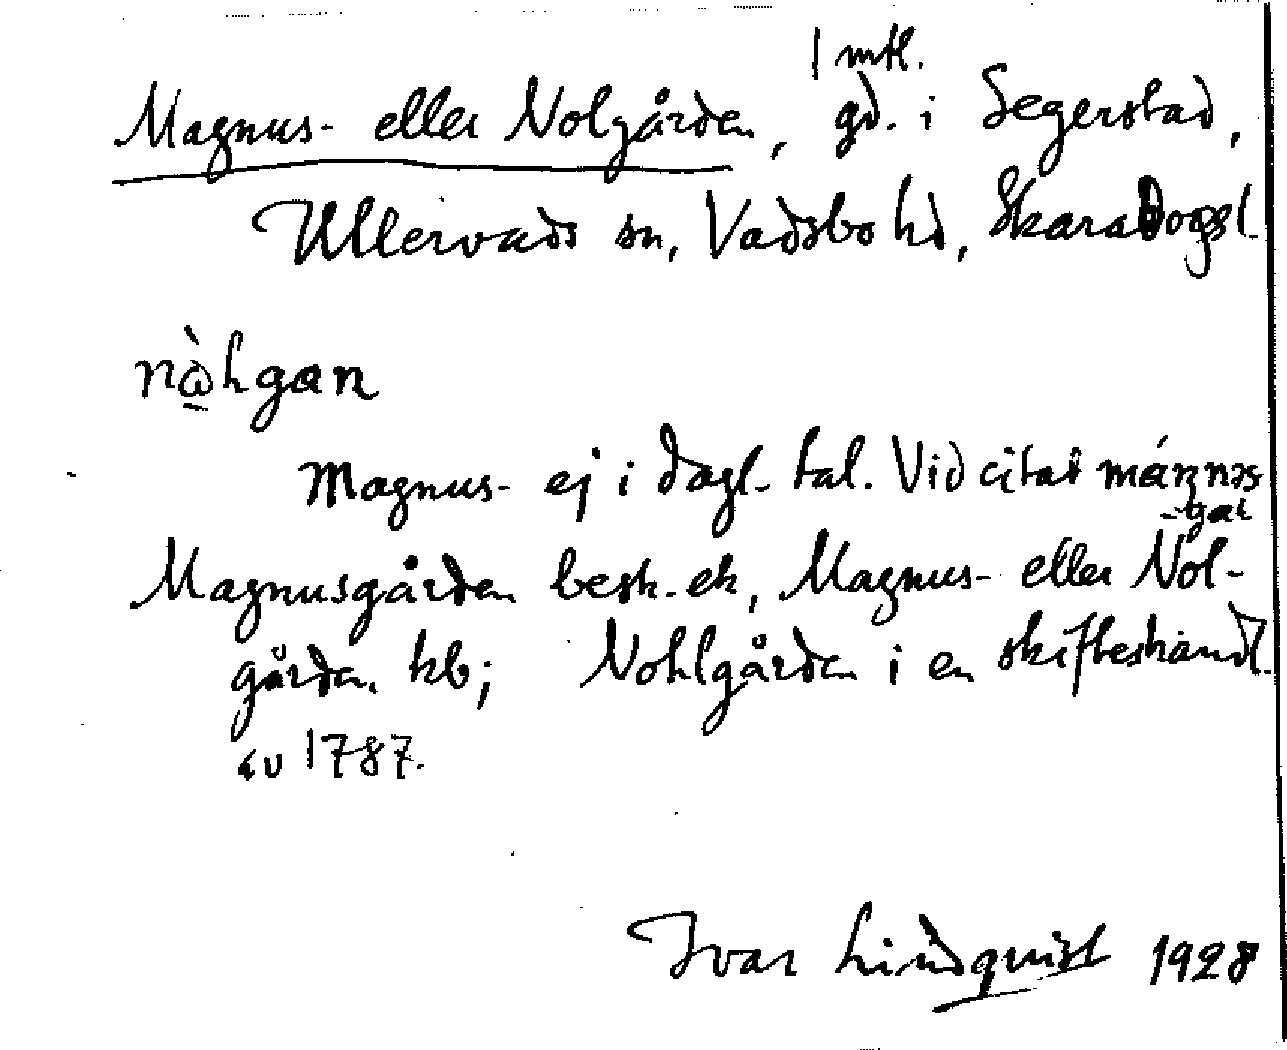 1 mtl.
Magnus- eller Nolgården, gd. i Segerstad,
Ullervads sn, Vadsbo hd, Skaraborgs l.
Magnus- ej i dagl. tal. Vid citat
Magnusgården besk. ek, Magnus- eller Nol-
gården kb; Nohlgården i en skifteshandl.
av 1787.
Ivar Lindquist 1928